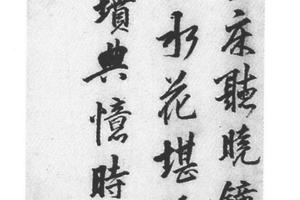 床聽曉
水花堪
墳典憶時